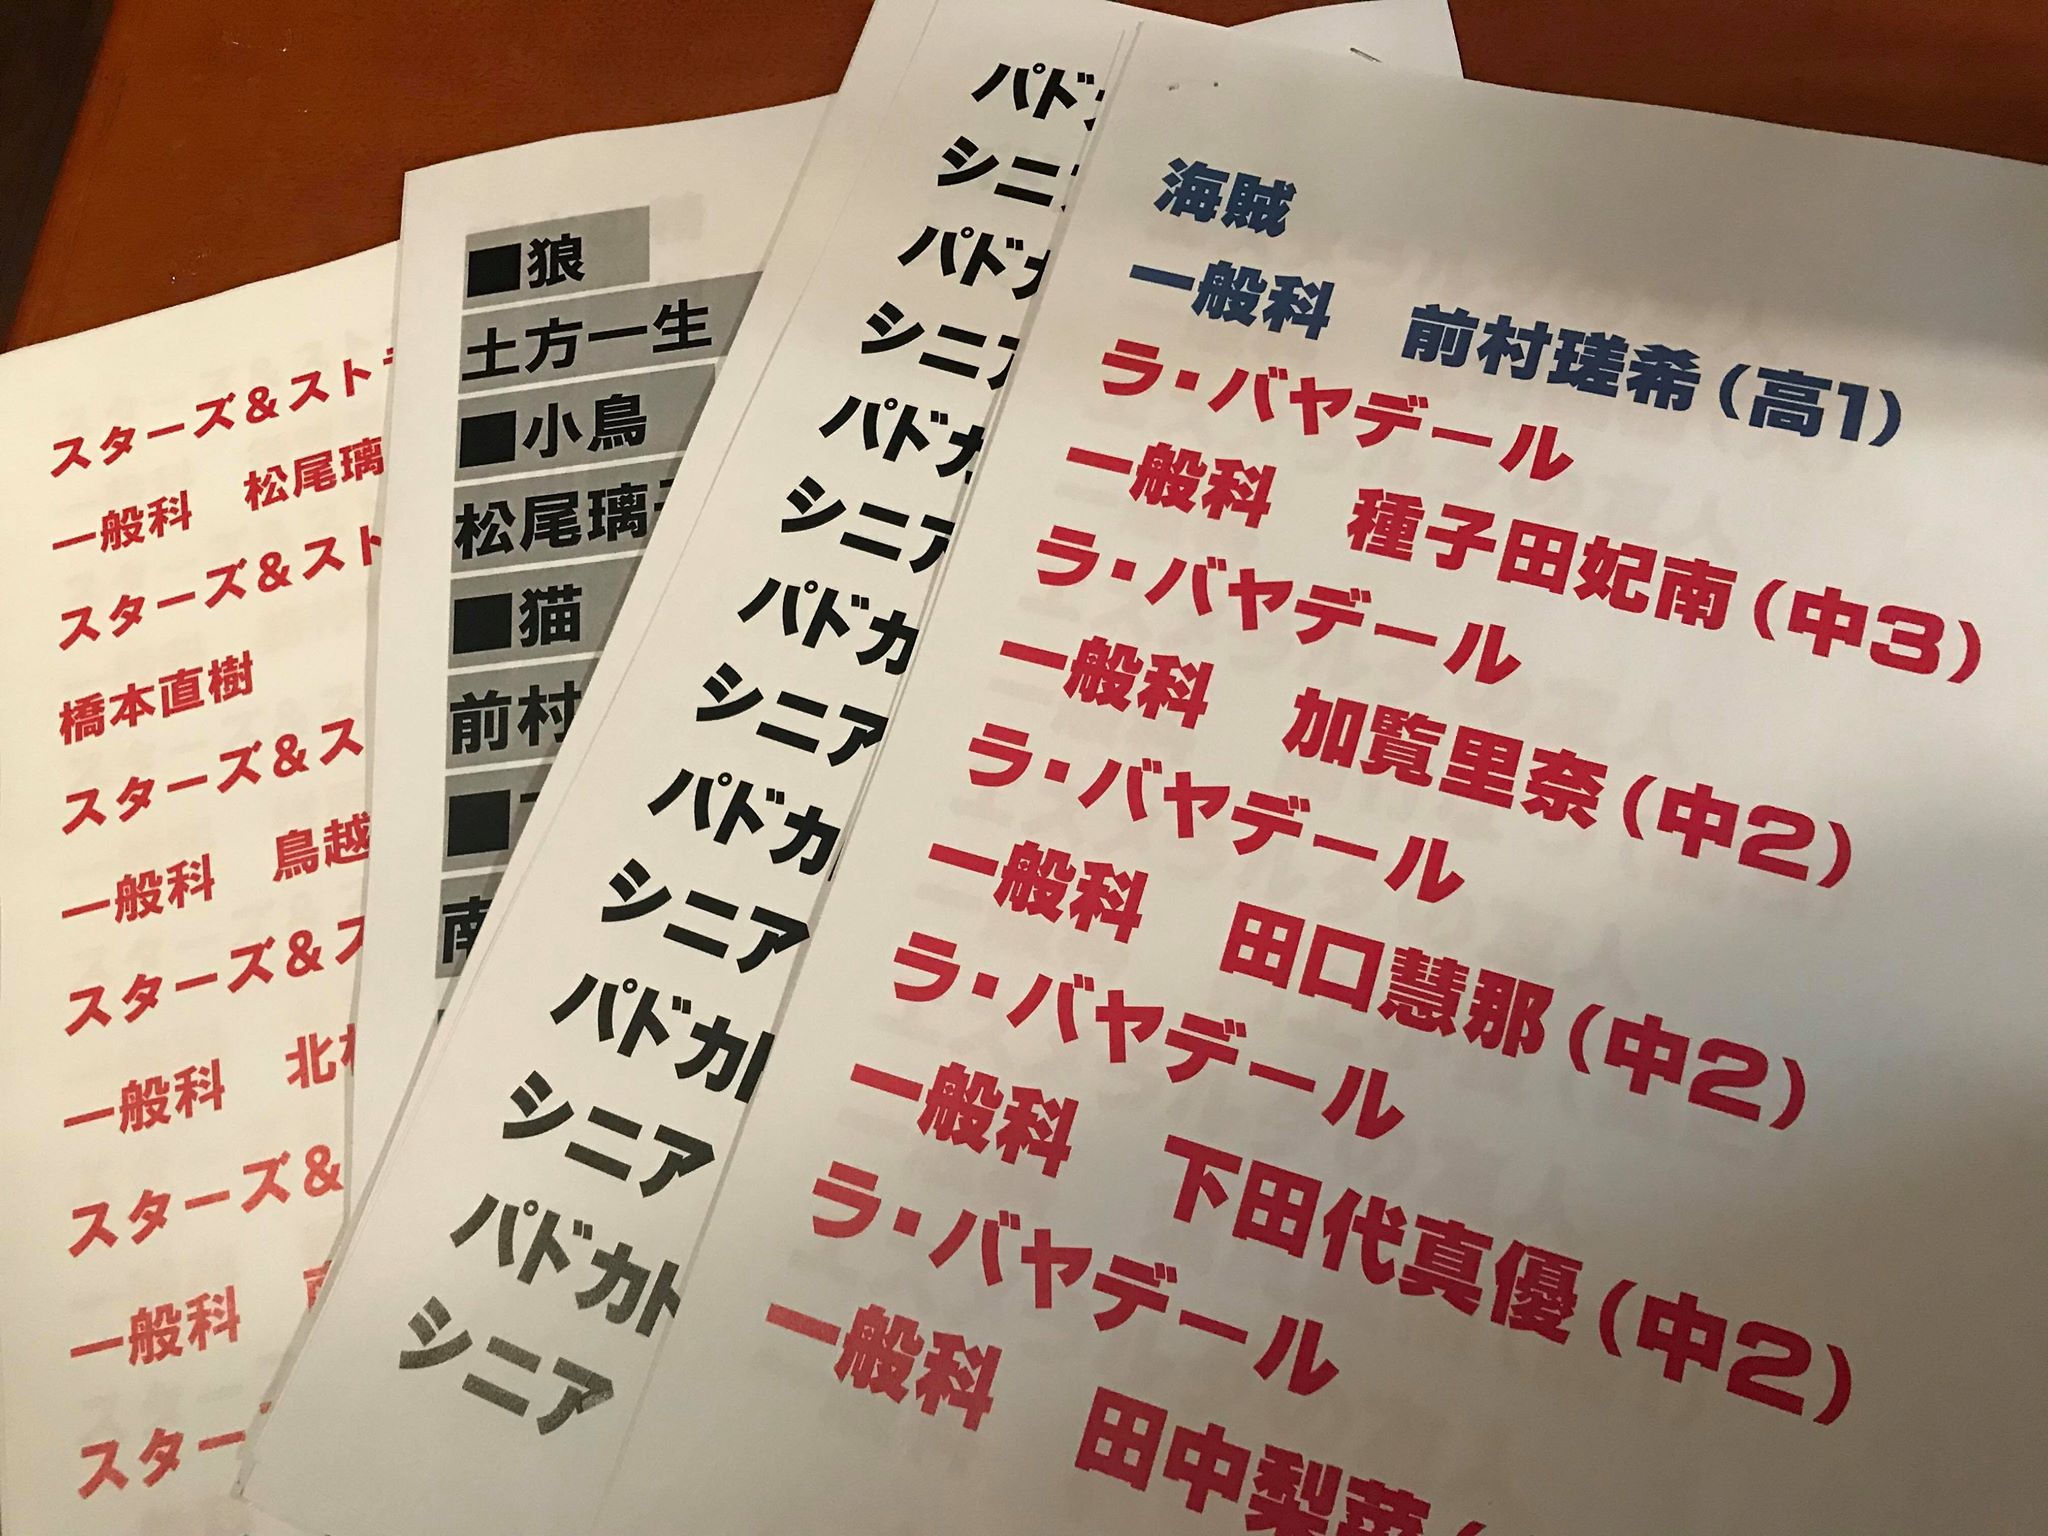 スターズ&スト
一般科 松尾璃
スターズ&スト
橋本直樹
スターズ&ス
一般科 鳥越
スターズ&ス
一般科 北
スターズ&
一般科
スター
■狼
土方一生
■小鳥
松尾璃
■猫
前村
■
南
パド
シニ
パドカ
シニア
パドカ
シニア
パドカ
シニア
パドカ
シニア
パドカト
シニア
パドカト
シニア
海賊
一般科 前村瑳希(高1)
ラ・バヤデール
一般科 種子田妃南(中3)
ラ・バヤデール
一般科 加覧里奈(中2)
ラ・バヤデール
一般科 田口慧那(中2)
ラ・バヤデール
一般科 下田代真優(中2)
ラ・バヤデール
一般科 田中梨菜(